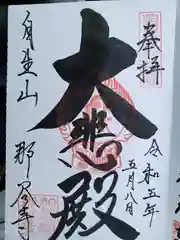 奉拝
令和五年
五月八日
大悲殿
自生山
那谷寺